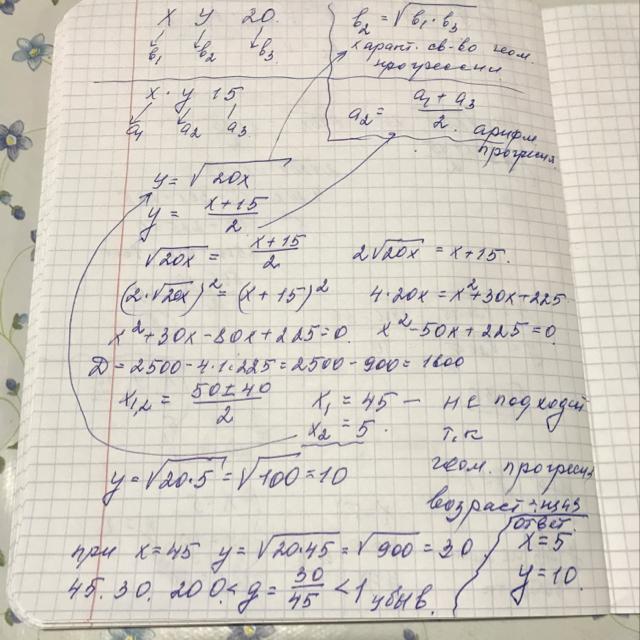 x y 20.
b₁ b₂ b₃
b₂ = √b₁·b₃
характ. св-во геом.
прогрессии
x · y 15
a₁ a₂ a₃
a₂ = (a₁ + a₃)/2. арифм
прогрессия
y = √20x
y = (x+15)/2
√20x = (x+15)/2 2√20x = x+15.
(2·√20x)² = (x+15)² 4·20x = x²+30x+225
x²+30x-80x+225=0. x²-50x+225=0
D = 2500-4·1·225 = 2500-900 = 1600
x₁,₂ = (50±40)/2 x₁ = 45 — не подходит
x₂ = 5. т.к
y = √20·5 = √100 = 10 геом. прогрессия
возраст знач
ответ
при x=45 y = √20·45 = √900 = 30. x=5
45. 30. 20 0<q = 30/45 <1 убыв. y=10.